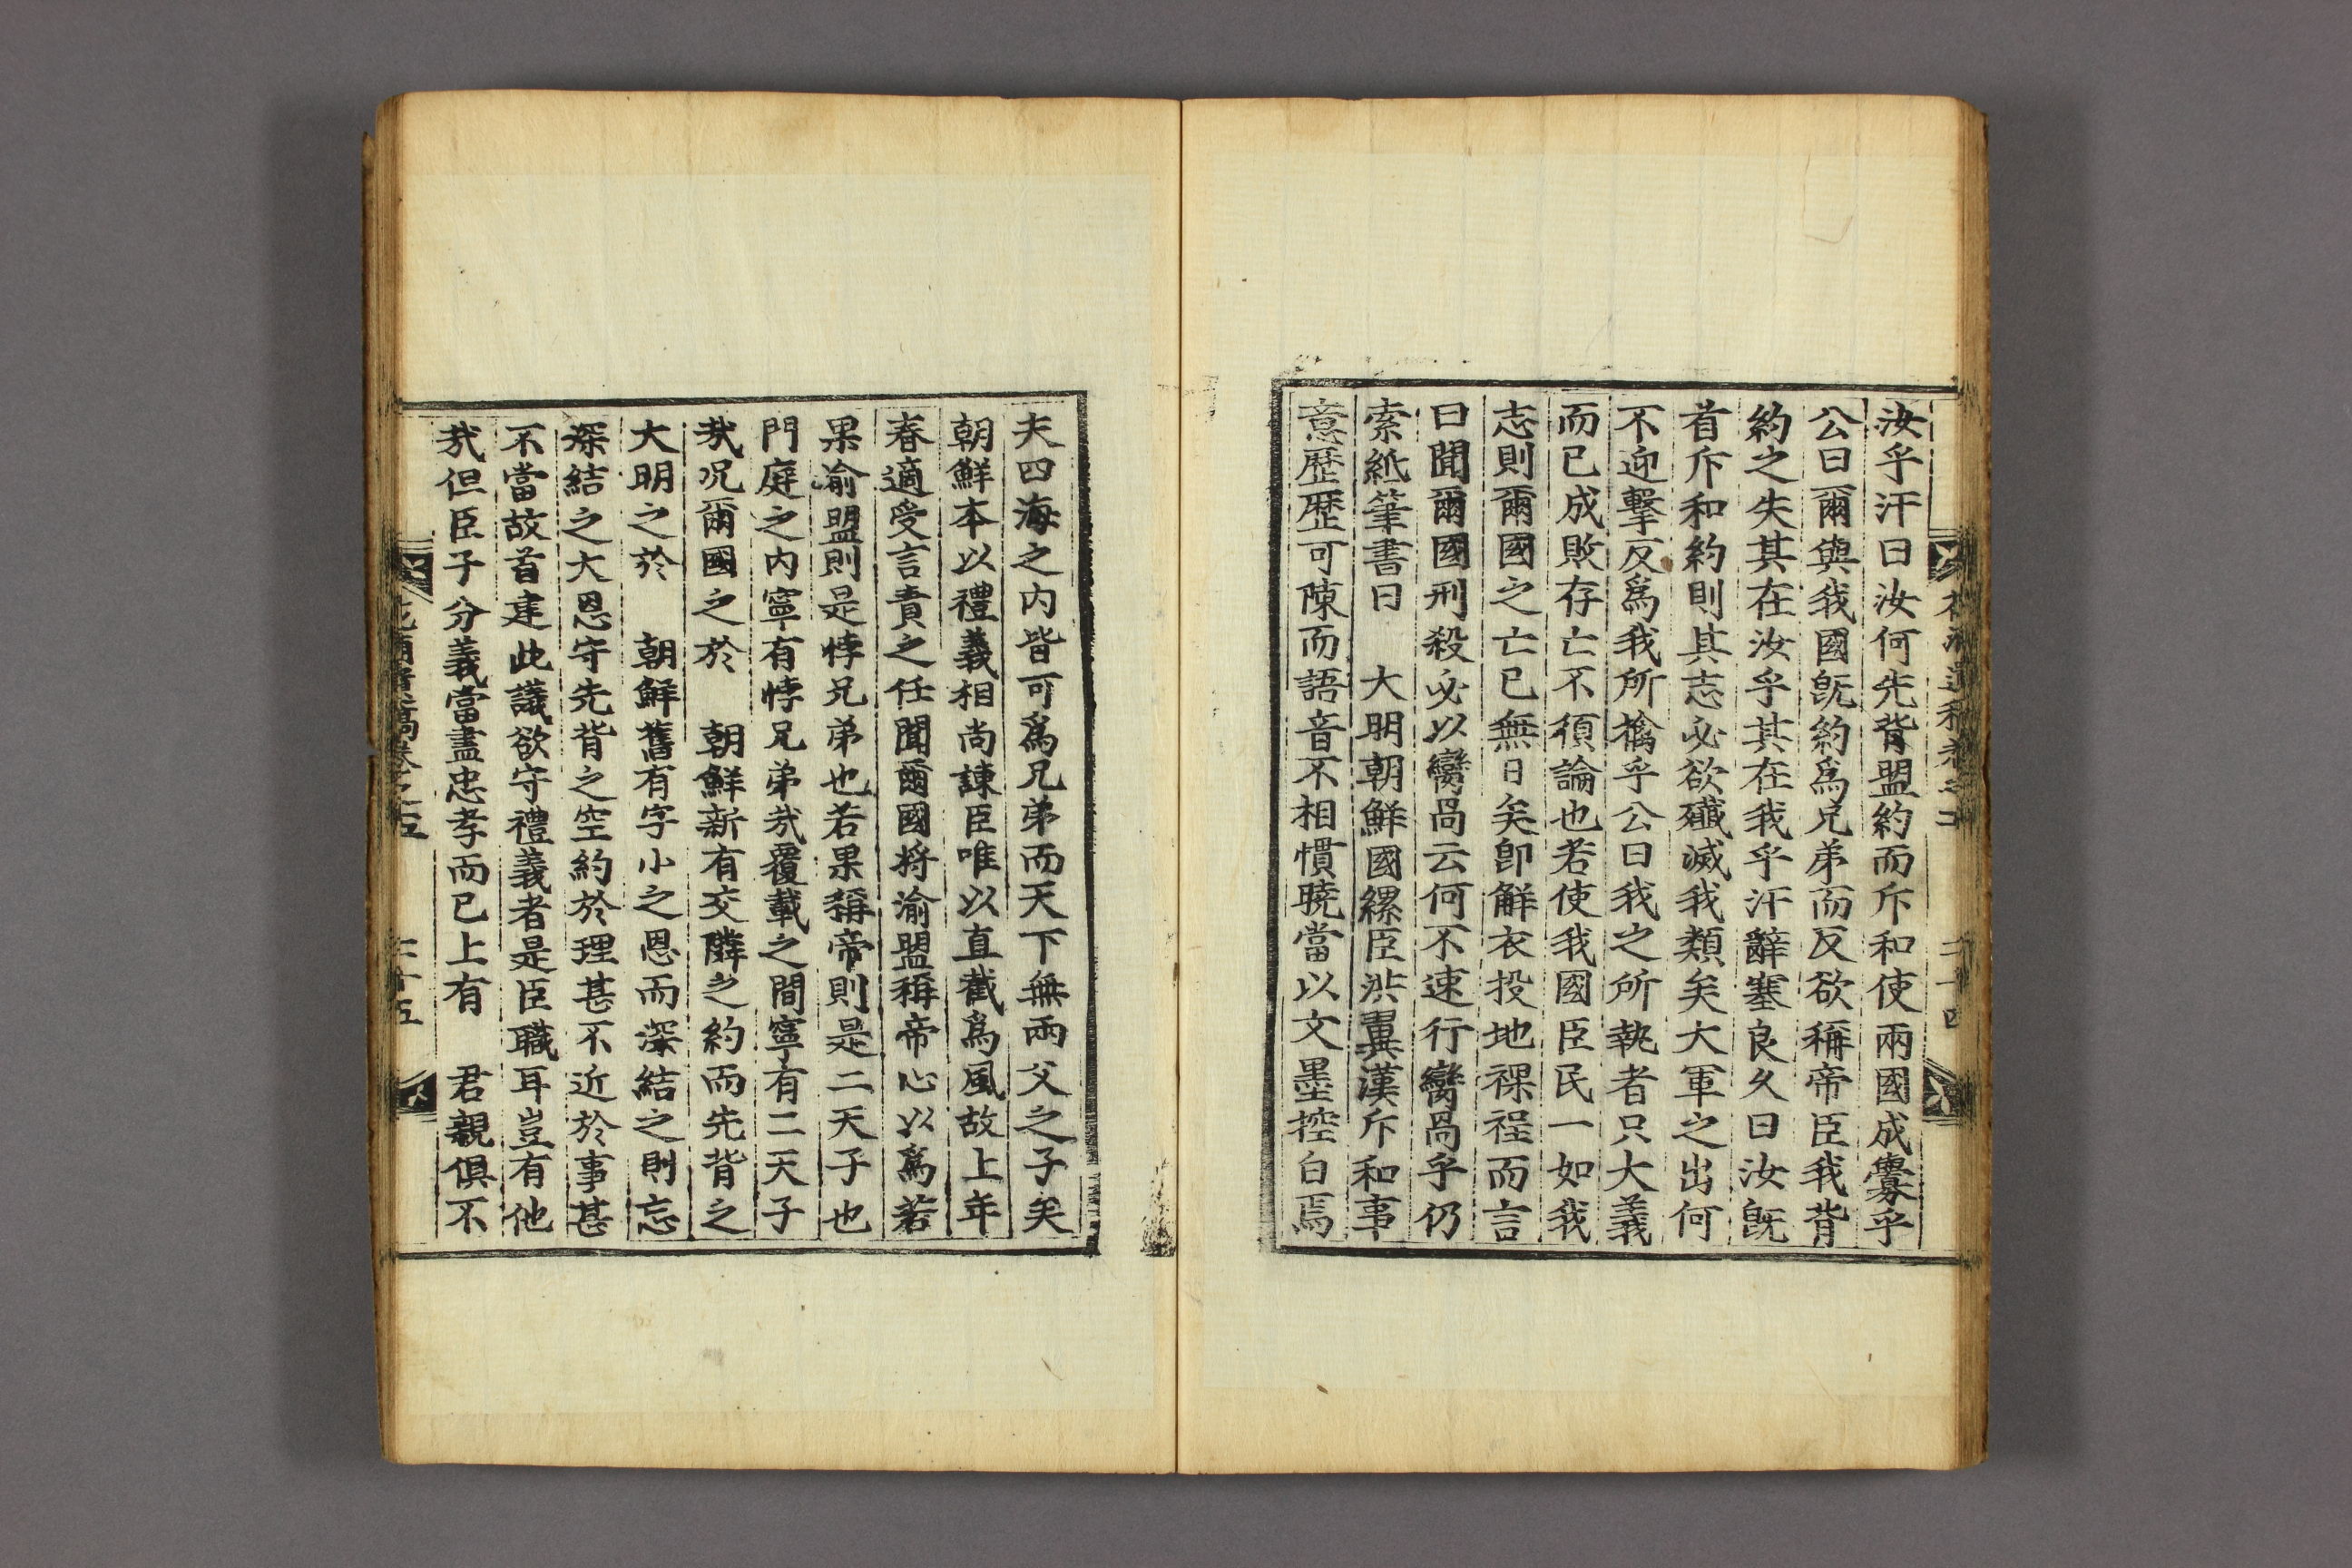 汝乎汗曰汝何先背盟約而斥和使兩國成釁乎
公曰爾與我國旣約爲兄弟而反欲稱帝臣我背
約之失其在汝乎其在我乎汗辭塞良久曰汝旣
首斥和約則其志必欲殲滅我類矣大軍之出何
不迎擊反爲我所擒乎公曰我之所執者只大義
而已成敗存亡不須論也若使我國臣民一如我
志則爾國之亡已無日矣卽解衣投地裸裎而言
曰聞爾國刑殺必以臠咼云何不速行臠咼乎仍
索紙筆書曰 大明朝鮮國纍臣洪翼漢斥和事
意歷歷可陳而語音不相慣曉當以文墨控白焉
夫四海之内皆可爲兄弟而天下無兩父之子矣
朝鮮本以禮義相尚諫臣唯以直截爲風故上年
春適受言責之任聞爾國將渝盟稱帝心以爲若
果渝盟則是悖兄弟也若果稱帝則是二天子也
門庭之内寧有悖兄弟哉覆載之間寧有二天子
哉况爾國之於 朝鮮新有交隣之約而先背之
大明之於 朝鮮舊有字小之恩而深結之則忘
深結之大恩守先背之空約於理甚不近於事甚
不當故首建此議欲守禮義者是臣職耳豈有他
哉但臣子分義當盡忠孝而已上有 君親俱不
卷之五 二十五